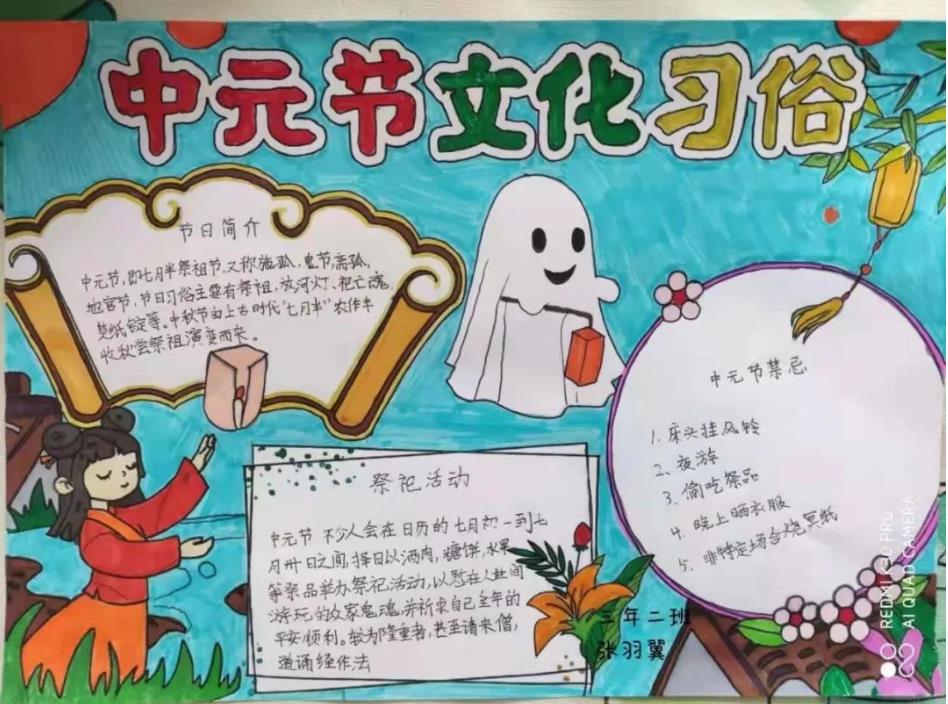 中元节文化习俗
节日简介
中元节,即七月半祭祖节,又称施孤,鬼节,斋孤,
地官节,节日习俗主要有祭祖,放河灯、祀亡魂,
焚纸锭等。中秋节由上古时代“七月半”农作丰
收秋尝祭祖演变而来。
祭祀活动
中元节 不少人会在日历的七月初一到七
月卅日之间,择日以酒肉,糖饼,水果
等祭品举办祭祀活动,以慰在人世间
游玩的众家鬼魂,并祈求自己全年的
平安顺利。较为隆重者,甚至请来僧,
道诵经作法
中元节禁忌
1. 床头挂风铃
2、夜游
3. 偷吃祭品
4. 晚上晒衣服
5. 非特定场合烧冥纸
三年二班
张羽翼
REDMI K30 PRO
AI QUAD CAMERA